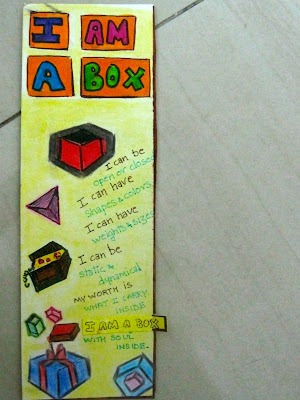 I AM
A BOX
I can be
open or closed
I can have
shapes & colors
I can have
weights & sizes
I can be
static &
dynamical
MY WORTH IS
WHAT I CARRY
INSIDE
I AM A BOX
WITH SOUL
INSIDE.